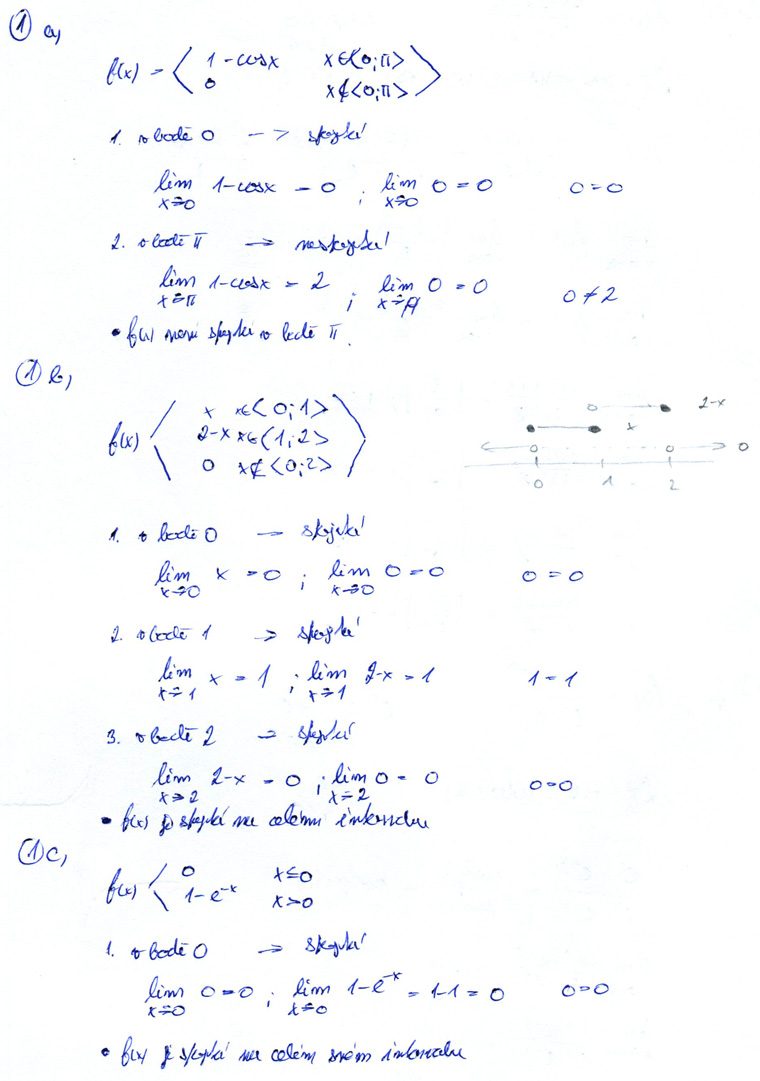 ① a,
f(x) = < 1-cosx x∈<0;π>
0 x∉<0;π> >
1. v bodě 0 -> spojitá
lim x→0 1-cosx = 0 ; lim x→0 0 = 0 0 = 0
2. v bodě π → nespojitá
lim x→π 1-cosx = 2 ; lim x→π 0 = 0 0 ≠ 2
• f(x) není spojitá v bodě π.
① b,
f(x) < x x∈<0;1>
2-x x∈(1;2>
0 x∉<0;2> >
2-x
x
0
0 1 2
1. v bodě 0 → spojitá
lim x→0 x = 0 ; lim x→0 0 = 0 0 = 0
2. v bodě 1 → spojitá
lim x→1 x = 1 ; lim x→1 2-x = 1 1 = 1
3. v bodě 2 → spojitá
lim x→2 2-x = 0 ; lim x→2 0 = 0 0=0
• f(x) je spojitá na celém intervalu
① c,
f(x) < 0 x≤0
1-e^-x x>0
1. v bodě 0 → spojitá
lim x→0 0=0 ; lim x→0 1-e^-x = 1-1 = 0 0=0
• f(x) je spojitá na celém svém intervalu